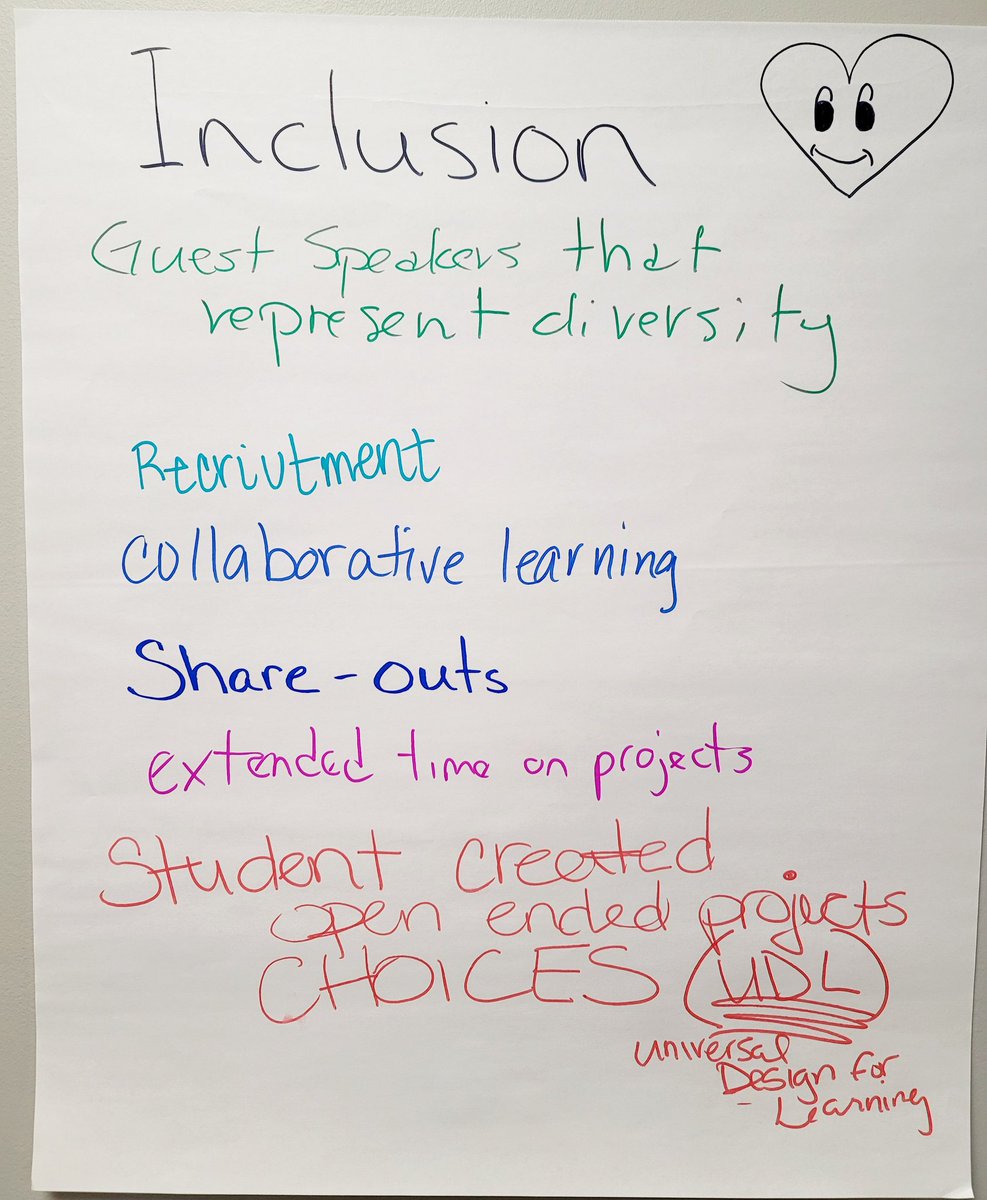 Inclusion
Guest Speakers that
represent diversity
Recriutment
Collaborative learning
Share-outs
extended time on projects
Student created
open ended projects
CHOICES UDL
universal
Design for
Learning